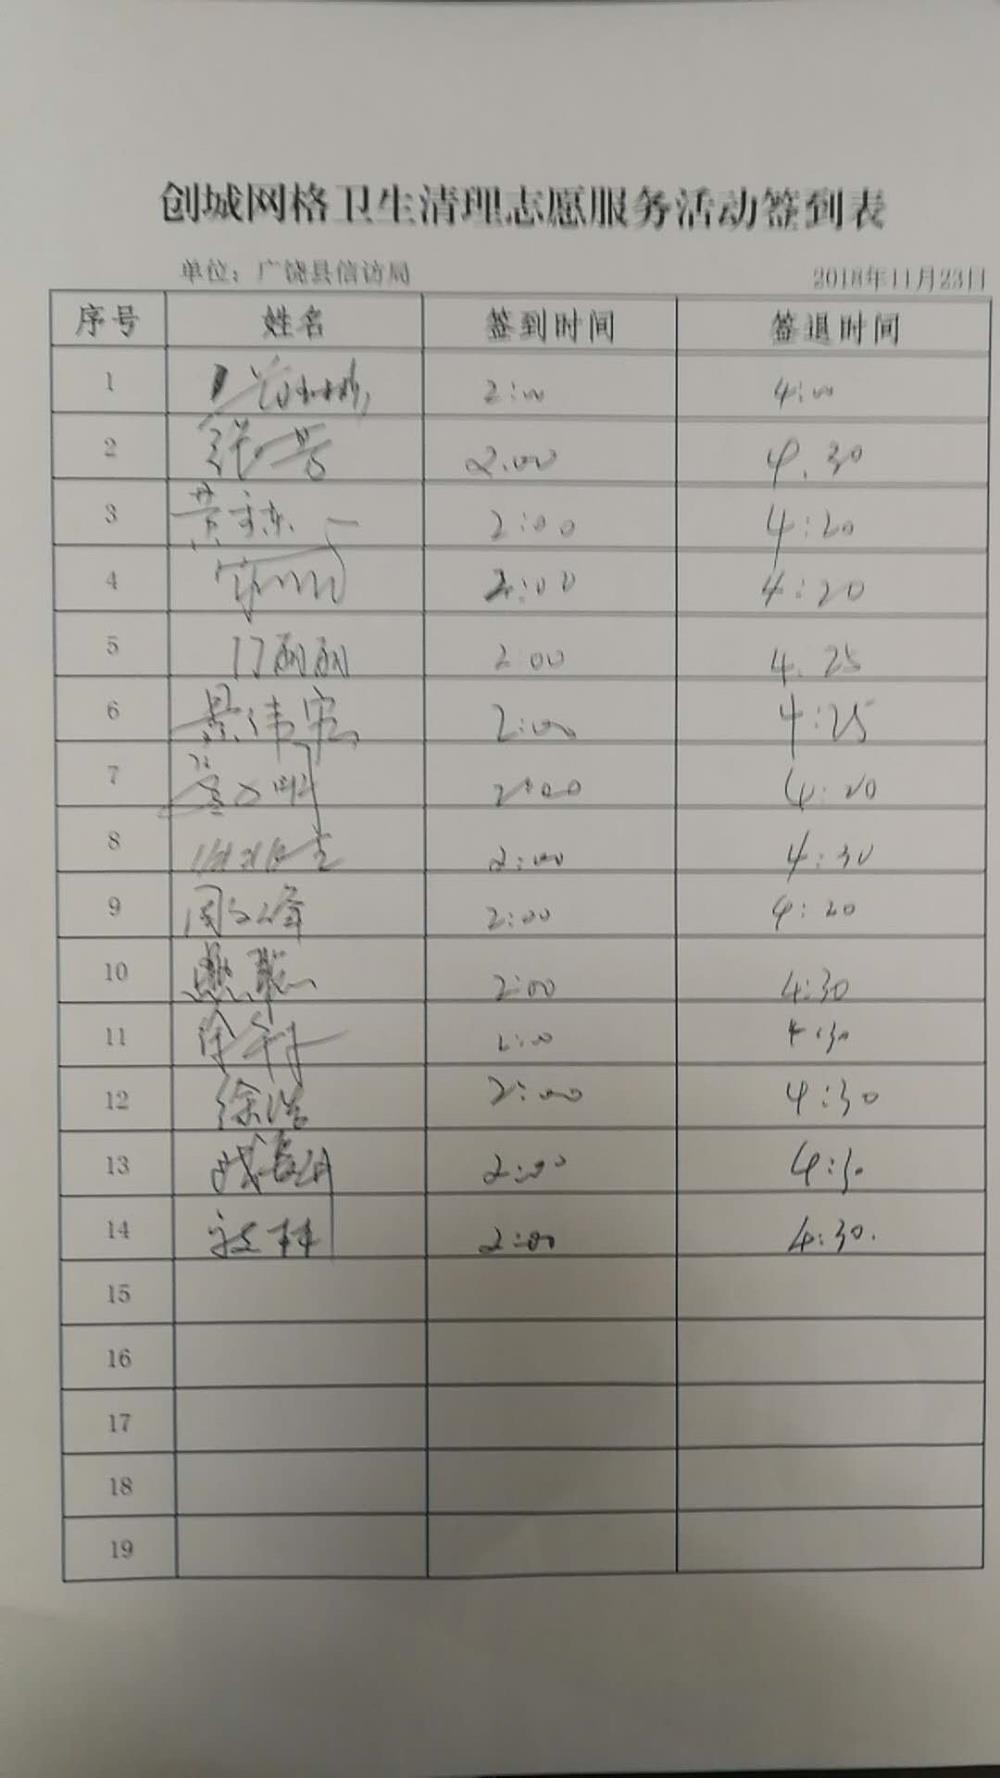 创城网格卫生清理志愿服务活动签到表
单位：广饶县信访局 2018年11月23日
序号 姓名 签到时间 签退时间
1 2:00 4:00
2 2.00 4.30
3 2:00 4:20
4 2:00 4:20
5 门丽丽 2:00 4.25
6 景伟宏 2:00 4:25
7 2:00 4:20
8 2:00 4:30
9 周文峰 2:00 4:20
10 2:00 4:30
11 2:00 4:30
12 徐浩 2:00 4:30
13 2:00 4:30
14 2:00 4:30.
15
16
17
18
19